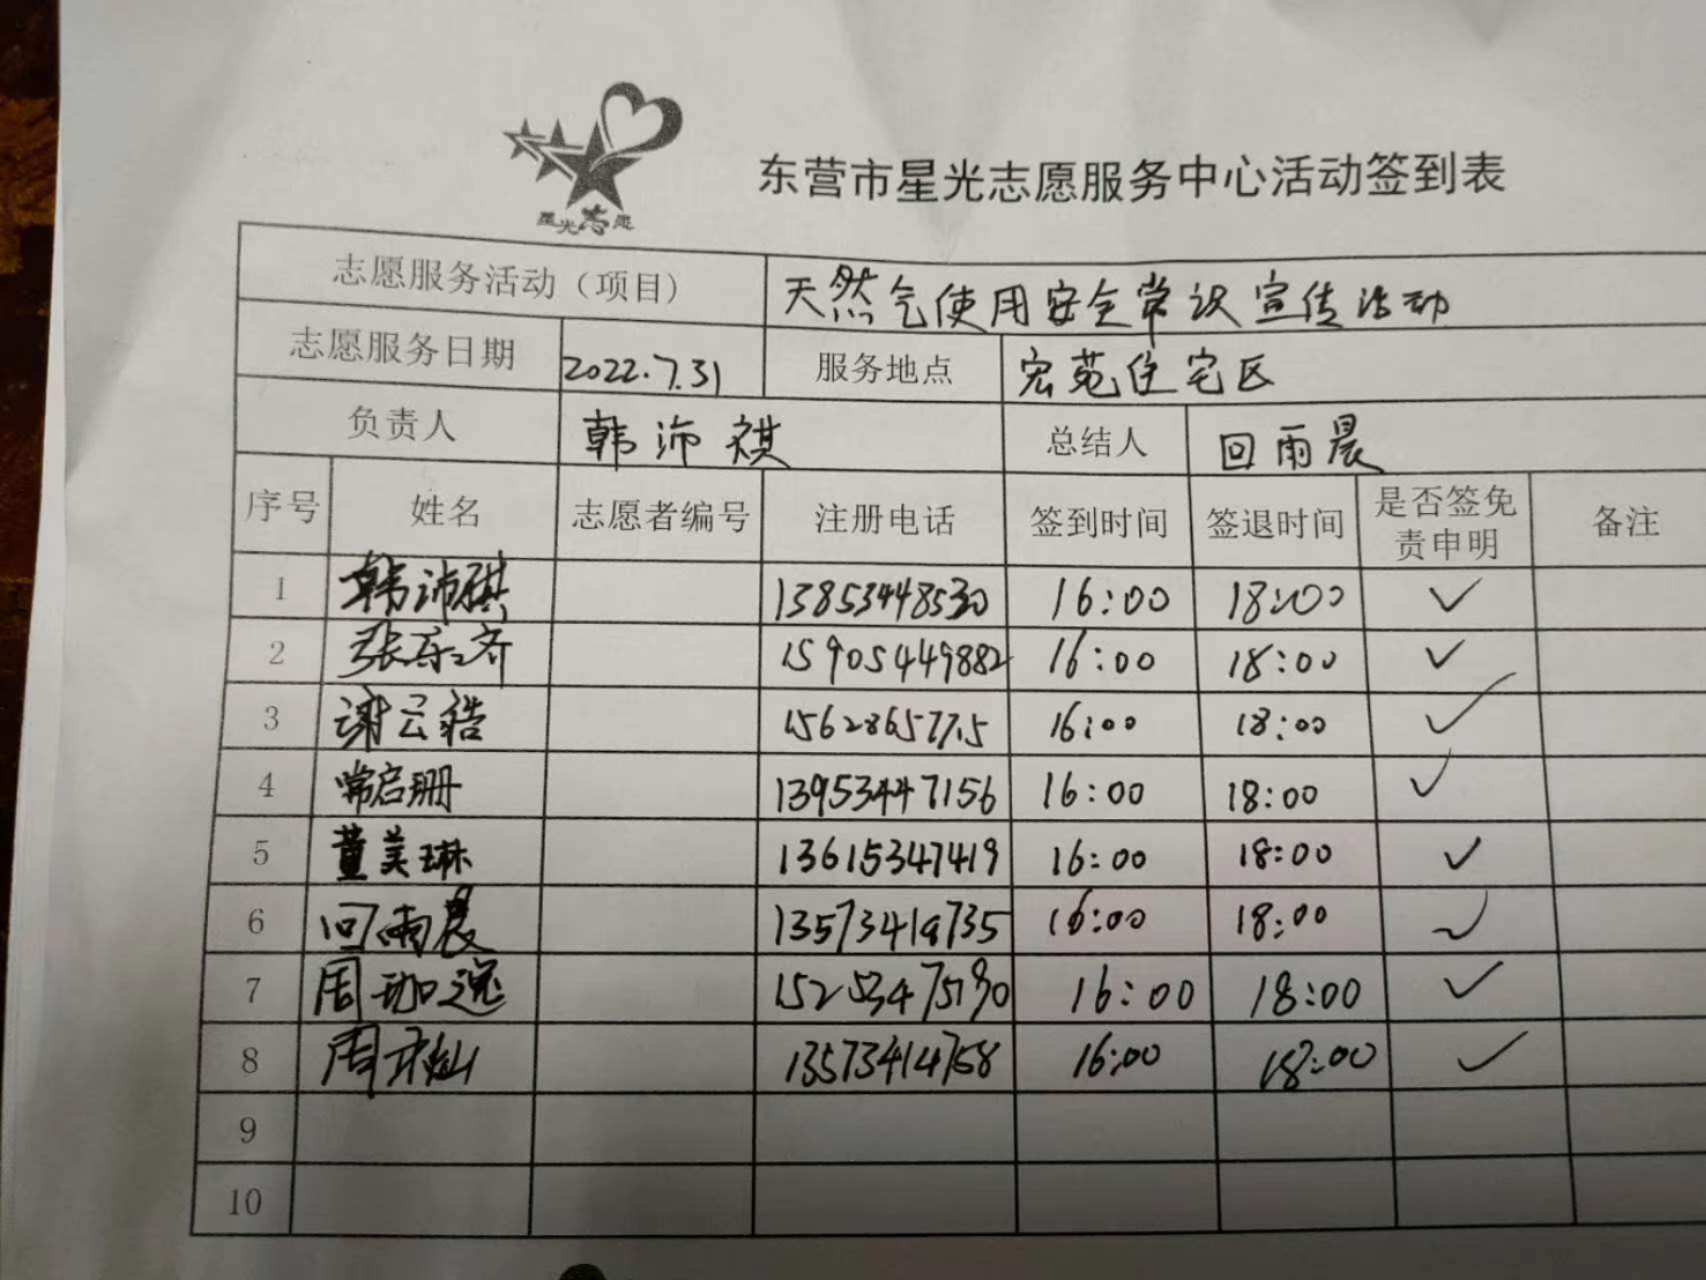 星光志愿
东营市星光志愿服务中心活动签到表
志愿服务活动（项目） 天然气使用安全常识宣传活动
志愿服务日期 2022.7.31 服务地点 宏苑住宅区
负责人 韩沛祺 总结人 回雨晨
序号 姓名 志愿者编号 注册电话 签到时间 签退时间 是否签免责申明 备注
1 韩沛祺 13853448530 16:00 18:00 ✓
2 15905449882 16:00 18:00 ✓
3 谢云皓 16:00 18:00 ✓
4 常启珊 13953447156 16:00 18:00 ✓
5 董美琳 13615347419 16:00 18:00 ✓
6 回雨晨 16:00 18:00 ✓
7 16:00 18:00 ✓
8 13573414758 16:00 18:00 ✓
9
10